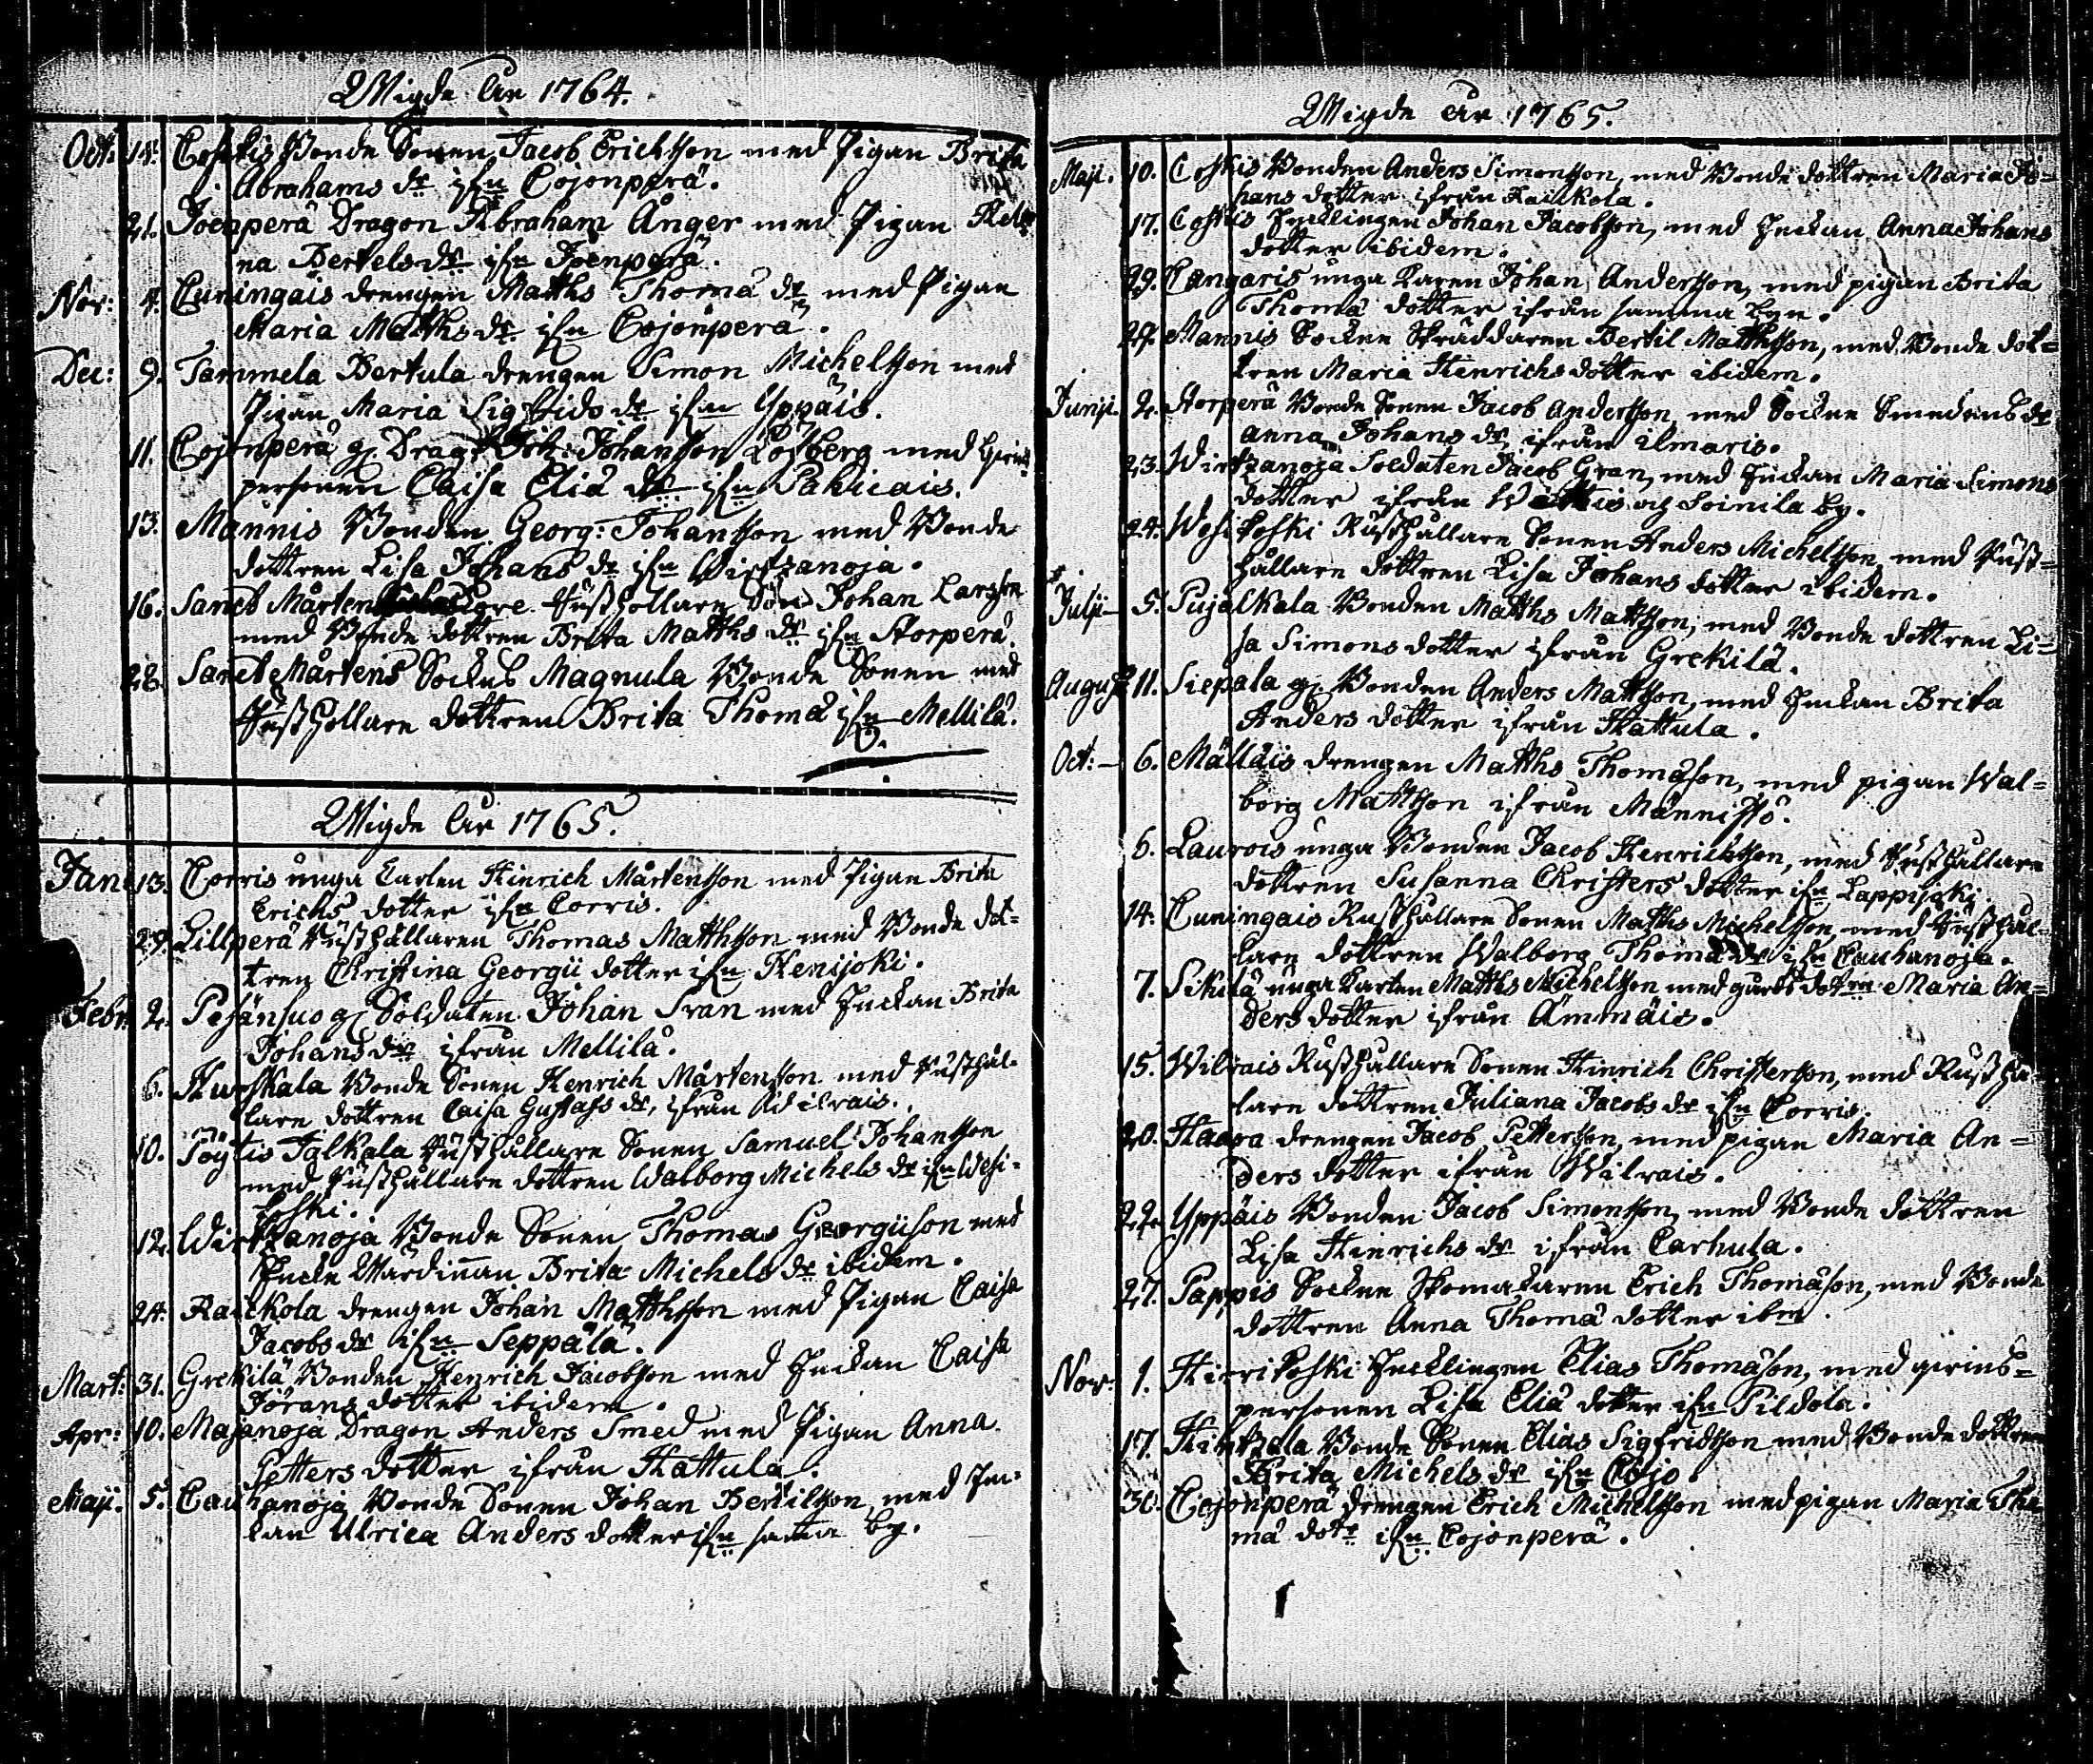 Wigde År 1764.
Oct: 14. Coskis Bonde Sonen Jacob Erichsson med Pigan Brita
Abrahams dr ifrn Cojonperä.
21. Joenperä Dragon Abraham Ånger med Pigan Hele
na Bertels dr ifrn Joenperä.
Nov: 4. Cuningais drengen Matths Thomæ dr med Pigan
Maria Matths dr ifrn Cojonperä.
Dec: 9. Tammela Bertula drengen Simon Michelsson med
Pigan Maria Sigfrids dr ifrn Yppäis.
11. Cojonperä gl. Drag: Joh: Johansson Löfberg med qvins
personen Caisa Eliæ dr ifrn Pahicais.
13. Männis Bonden Georg: Johansson med Bonde
dottren Lisa Johans dr ifrn Wirtzanoja.
16. Sanct Mårtens Rusthollare Son Johan Larsson
med Bonde dottren Brita Matths dr ifrn Storperä.
28. Sanct Mårtens Sockns Magnula Bonde Sonen med
Rusthollare dottren Brita Thomæ ifrn Mellilä.
Wigde År 1765.
Jan: 13. Corris unga Karlen Hinrich Mårtensson med Pigan Brita
Erichs dotter ifrn Corris.
29. Lillperä Rusthållaren Thomas Matthsson med Bonde dot=
tren Christina Georgii dotter ifrn Kenijoki.
Febr: 2. Pesänsuo gl Soldaten Johan Sran med Enckan Brita
Johans dr ifrån Mellilä.
6. Hurskala Bonde Sonen Henrich Mårtensson med Rusthål-
lare dottren Caisa Gustafs dr, ifrån Wilrais.
10. Pöytis Jalkala Rusthållare Sonen Samuel Johansson
med Rusthållare dottren Walborg Michels dr ifrn Wesi-
koski.
12. Wirtzanoja Bonde Sonen Thomas Georgiison med
Encke Wärdinnan Brita Michels dr ibidem.
24. Raickola drengen Johan Matthsson med Pigan Caisa
Jacobs dr ifrn Seppälä.
Mart: 31. Grekilä Bonden Henrich Jacobson med Enckan Caisa
Jörans dotter ibidem.
Apr: 10. Majanoja Dragon Anders Smed med Pigan Anna
Petters dotter ifrån Hattula.
Maji: 5. Cauhanoja Bonde Sonen Johan Bertilsson, med En-
kan Ulrica Anders dotter ifrn samma by.
Wigde År 1765.
Maji. 10. Coskis Bonden Anders Simonsson, med Bonde dottren Maria Jo=
hans dotter ifrån Raickola.
17. Coskis Encklingen Johan Jacobsson, med Enckan Anna Johans
dotter ibidem.
29. Cangaris unga Karen Johan Andersson, med pigan Brita
Thomæ dotter ifrån samma byn.
29. Mannis Sockne Skräddaren Bertil Matthsson, med Bonde dot=
tren Maria Henrichs dotter ibidem.
Junji. 2. Storperä Bonde Sonen Jacob Andersson med Sockne Smedens dr
Anna Johans dr ifrån ilmaris.
23. Wirtzanoja Soldaten Jacob Gran, med Enckan Maria Simons
dotter ifrån Wättis och Soinila by.
24. Wesikoski Rusthållare Sonen Anders Michelsson, med Rust=
hållare dottren Lisa Johans dotter ibidem.
Julji - 5. Pujalkala Bonden Matths Mattsson, med Bonde dottren Li=
sa Simons dotter ifrån Grekilä.
August 11. Siepala gl. Bonden Anders Mattsson, med Enckan Brita
Anders dotter ifrån Hattula.
Oct: - 6. Mälläis drengen Matths Thomæson, med pigan Wal=
borg Mattsson ifrån Männistö.
6. Laurois unga Bonden Jacob Henrichsson, med Rusthållare
dottren Susanna Christers dotter ifrn Lappijoki.
14. Cuningais Rusthållare Sonen Matths Michelsson, med Rusthål=
lare dottren Walborg Thomæ dr ifrn Cauhanoja.
7. Sikilä unga Karlen Matths Michelsson med gårds dotrn Maria An=
ders dotter ifrån Ämmäis.
15. Wilrais Rusthållare Sonen Hinrich Christersson, med Rusthå-
lare dottren Juliana Jacobs dr ifrn Corris.
20. Haara drengen Jacob Pettersson, med pigan Maria An=
ders dotter ifrån Wilrais.
22. Yppäis Bonden Jacob Simonsson, med Bonde dottren
Lisa Hinrichs dr ifrån Carhula.
27. Pappis Sockne Skomakaren Erich Thomæson, med Bonde
dottren Anna Thomæ dotter ibm.
Nov: 1. Hierikoski Encklingen Elias Thomæson, med qvins=
personen Lisa Eliæ dotter ifrn Pildola.
17. Hintzala Bonde Sonen Elias Sigfridsson med Bonde dottren
Brita Michels dr ifrn Cojo.
30. Cojonperä drengen Erich Michelsson med pigan Maria Tho
mæ dotr ifrn Cojonperä.